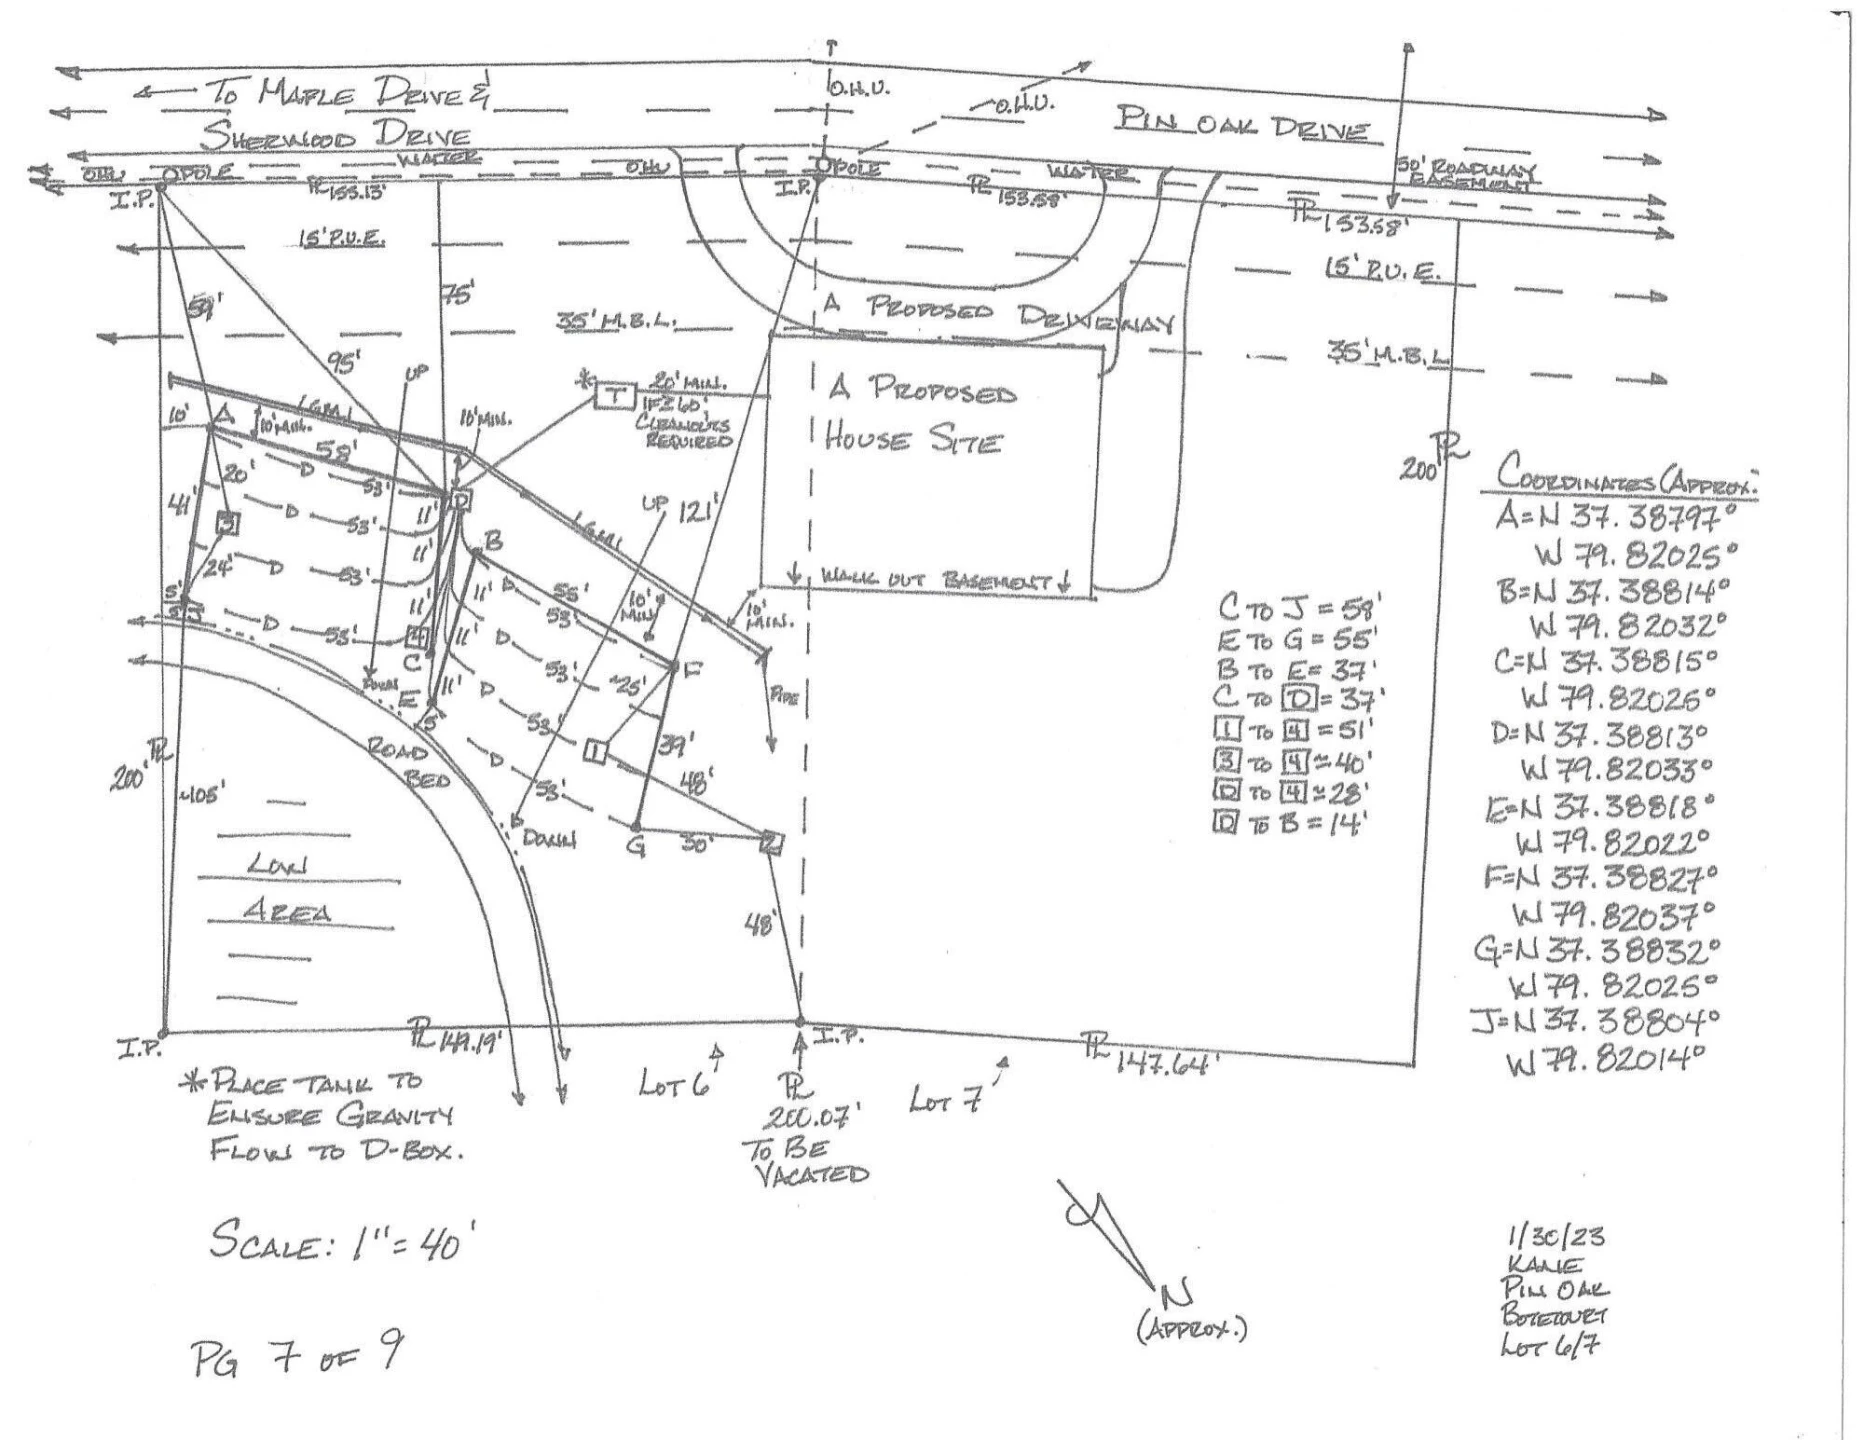 O.H.U.
← TO MAPLE DRIVE &
SHERWOOD DRIVE
O.H.U.
PIN OAK DRIVE
OHU
POLE
WATER
OHU
POLE
WATER
50' ROADWAY
EASEMENT
I.P.
PL 155.13'
I.P.
PL
153.58'
PL
153.58'
15' P.U.E.
15' P.U.E.
59'
75'
35' M.B.L.
A PROPOSED DRIVEWAY
35' M.B.L.
95'
UP
* T
20' MIN.
IF ≥ 60'
CLEANOUTS
REQUIRED
A PROPOSED
HOUSE SITE
10'
A
10' MIN.
10' MIN.
58'
20'
D
53'
D
11'
41'
3
D
53'
UP
121'
PL
200'
COORDINATES (APPROX.
A=N 37.38797°
W 79.82025°
B=N 37.38814°
W 79.82032°
C=N 37.38815°
W 79.82026°
D=N 37.38813°
W 79.82033°
E=N 37.38818°
W 79.82022°
F=N 37.38827°
W 79.82037°
G=N 37.38832°
W 79.82025°
J=N 37.38804°
W 79.82014°
11'
B
24'
D
53'
11'
D
55'
53'
10'
MIN.
10'
MIN.
↓ WALK OUT BASEMENT ↓
5'
5'
J
D
53'
11'
4
C
11'
D
53'
F
~25'
E
11'
D
53'
PIPE
5'
DOWN
C TO J = 58'
E TO G = 55'
B TO E = 37'
C TO D = 37'
1 TO 4 = 51'
3 TO 4 ≃ 40'
D TO 4 ≃ 28'
D TO B = 14'
PL
200'
~105'
ROAD
BED
D
53'
1
39'
48'
DOWN
G
30'
2
LOW
AREA
48'
I.P.
PL 149.19'
I.P.
PL 147.64'
LOT 6
PL
200.07'
TO BE
VACATED
LOT 7
* PLACE TANK TO
ENSURE GRAVITY
FLOW TO D-BOX.
SCALE: 1" = 40'
N
(APPROX.)
PG 7 OF 9
1/30/23
KANE
PIN OAK
BOTETOURT
LOT 6/7